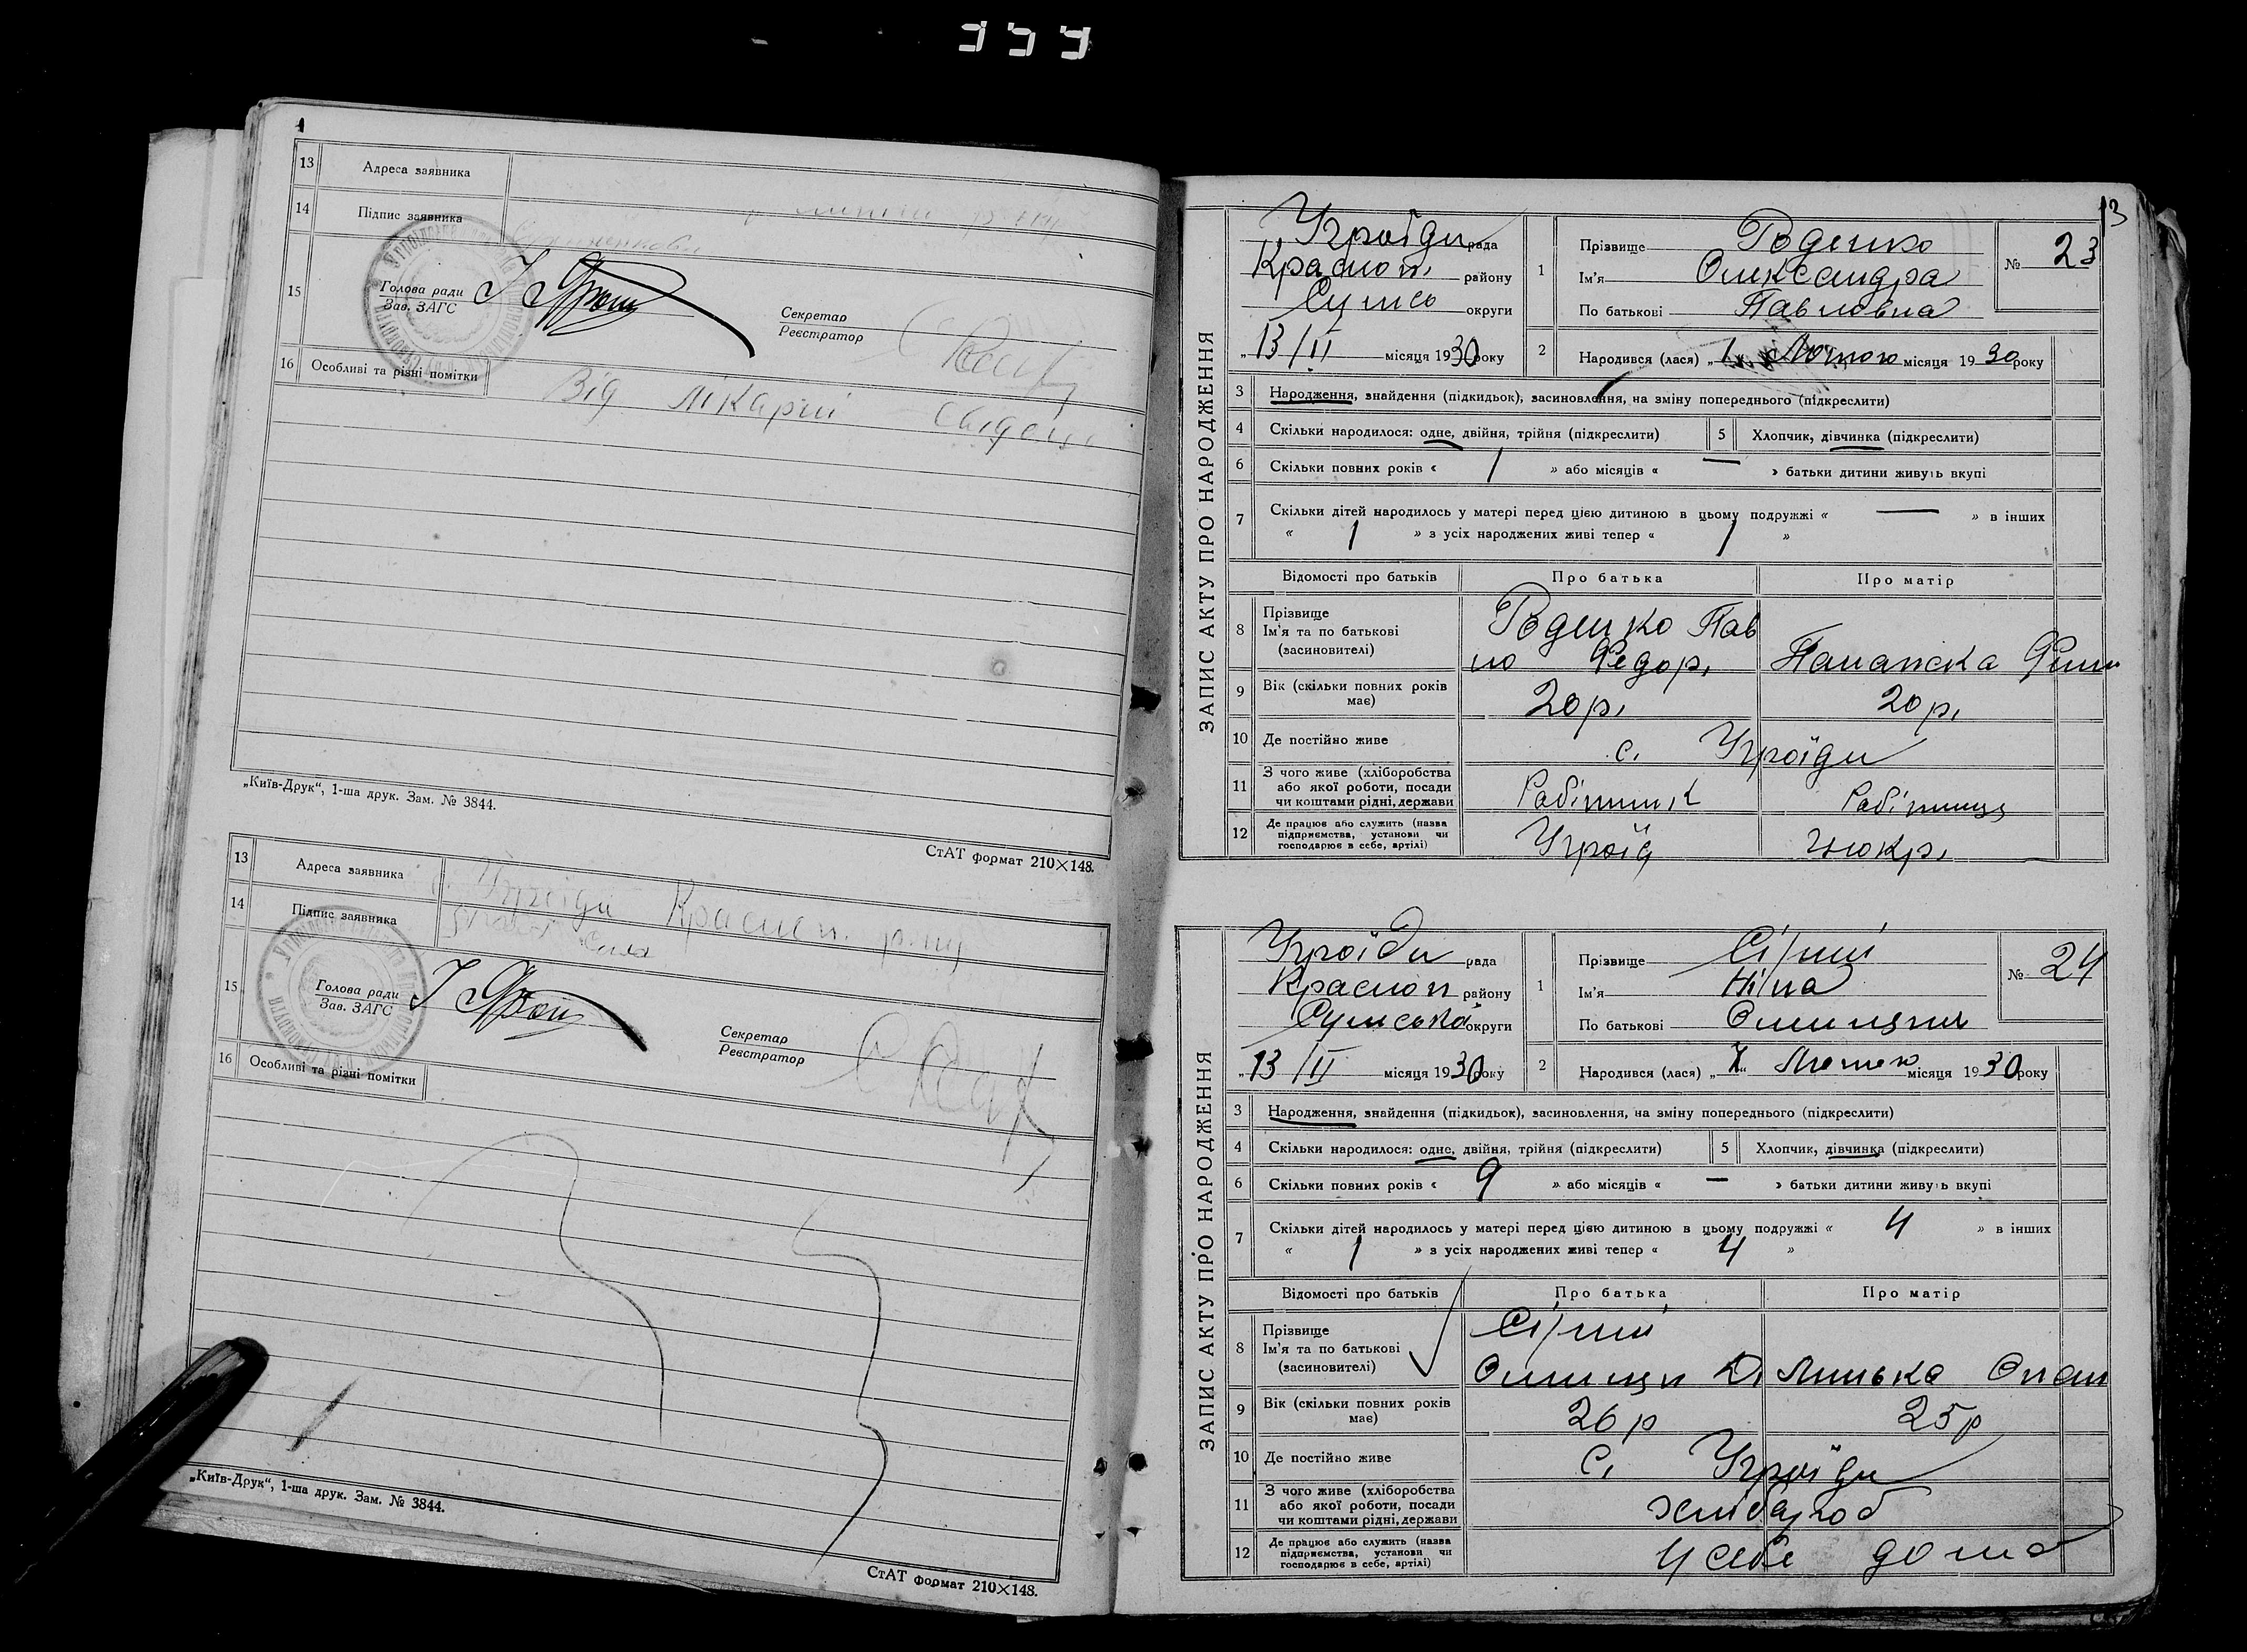 13 Адреса заявника
14 Підпис заявника
15 Голова ради
Зав. ЗАГС
Секретар
Реєстратор
16 Особливі та різні помітки Від лікарні
„Київ-Друк“, 1-ша друк. Зам. № 3844.
СтАТ формат 210×148.
13 Адреса заявника Угроїди Краснп. р-ну
14 Підпис заявника
15 Голова ради
Зав. ЗАГС
Секретар
Реєстратор
16 Особливі та різні помітки
„Київ-Друк“, 1-ша друк. Зам. № 3844.
СтАТ формат 210×148.
13
ЗАПИС АКТУ ПРО НАРОДЖЕННЯ
Угроїди рада
Красноп. району
округи
„13/II місяця 1930 року
1 Прізвище
Ім'я Олександра
По батькові Павловна
№ 23
2 Народився (лася) „ Лютого місяця 1930 року
3 Народження, знайдення (підкидьок), засиновлення, на зміну попереднього (підкреслити)
4 Скільки народилося: одне, двійня, трійня (підкреслити) 5 Хлопчик, дівчинка (підкреслити)
6 Скільки повних років « 1 » або місяців « — » батьки дитини живуть вкупі
7 Скільки дітей народилось у матері перед цією дитиною в цьому подружжі « — » в інших
« 1 » з усіх народжених живі тепер « 1 »
Відомості про батьків Про батька Про матір
8 Прізвище
Ім'я та по батькові
(засиновителі)
Пав
ло Федор.
9 Вік (скільки повних років має) 20 р. 20 р.
10 Де постійно живе с. Угроїди
11 З чого живе (хліборобства
або якої роботи, посади
чи коштами рідні, держави Робітник Робітниця
12 Де працює або служить (назва
підприємства, установи чи
господарює в себе, артілі) Угроїд цюкр.
ЗАПИС АКТУ ПРО НАРОДЖЕННЯ
Угроїди рада
Красноп району
Сумська округи
„13/II місяця 1930 року
1 Прізвище Сірий
Ім'я Ніна
По батькові
№ 24
2 Народився (лася) „ місяця 1930 року
3 Народження, знайдення (підкидьок), засиновлення, на зміну попереднього (підкреслити)
4 Скільки народилося: одне, двійня, трійня (підкреслити) 5 Хлопчик, дівчинка (підкреслити)
6 Скільки повних років « 9 » або місяців « — » батьки дитини живуть вкупі
7 Скільки дітей народилось у матері перед цією дитиною в цьому подружжі « 4 » в інших
« 1 » з усіх народжених живі тепер « 4 »
Відомості про батьків Про батька Про матір
8 Прізвище
Ім'я та по батькові
(засиновителі)
Сірий
9 Вік (скільки повних років має) 26 р 25 р
10 Де постійно живе с. Угроїди
11 З чого живе (хліборобства
або якої роботи, посади
чи коштами рідні, держави
12 Де працює або служить (назва
підприємства, установи чи
господарює в себе, артілі) у себе дома